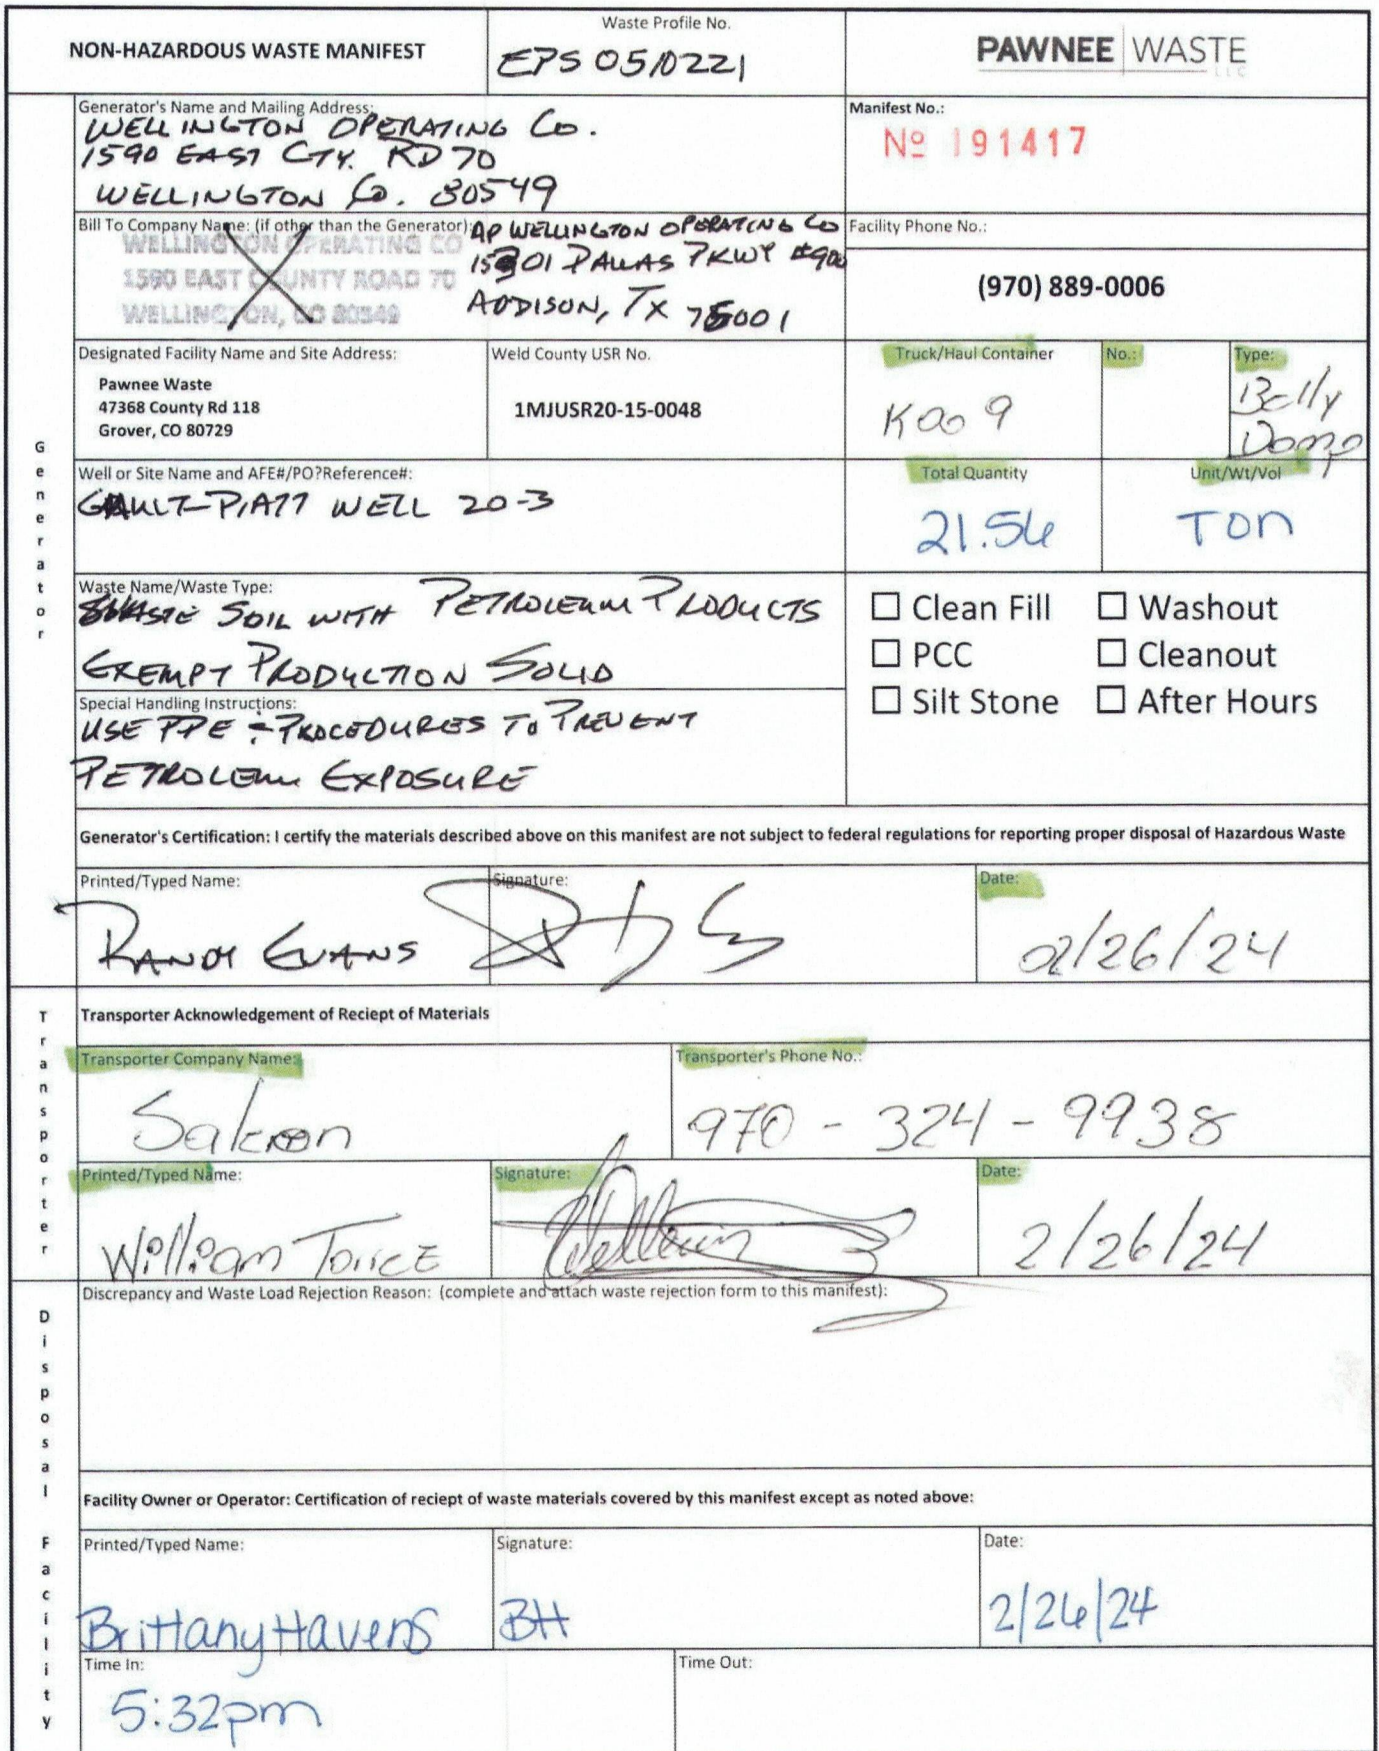 NON-HAZARDOUS WASTE MANIFEST
Waste Profile No.
EPS 0510221
PAWNEE WASTE
LLC
Generator's Name and Mailing Address:
WELLINGTON OPERATING CO.
1590 EAST CTY. RD 70
WELLINGTON CO. 80549
Manifest No.:
№ 191417
Bill To Company Name: (if other than the Generator):
WELLINGTON OPERATING CO
1590 EAST COUNTY ROAD 70
WELLINGTON, CO 80549
AP WELLINGTON OPERATING CO
15301 DALLAS PKWY #900
ADDISON, TX 75001
Facility Phone No.:
(970) 889-0006
Designated Facility Name and Site Address:
Pawnee Waste
47368 County Rd 118
Grover, CO 80729
Weld County USR No.
1MJUSR20-15-0048
Truck/Haul Container
K009
No.:
Type:
Belly
Domp
Well or Site Name and AFE#/PO?Reference#:
GAULT-PIATT WELL 20-3
Total Quantity
21.56
Unit/Wt/Vol
TON
Waste Name/Waste Type:
SOIL WITH PETROLEUM PRODUCTS
EXEMPT PRODUCTION SOLID
Special Handling Instructions:
USE PPE & PROCEDURES TO PREVENT
PETROLEUM EXPOSURE
☐ Clean Fill ☐ Washout
☐ PCC ☐ Cleanout
☐ Silt Stone ☐ After Hours
Generator's Certification: I certify the materials described above on this manifest are not subject to federal regulations for reporting proper disposal of Hazardous Waste
Printed/Typed Name:
RANDY EVANS
Signature:
Date:
2/26/24
Generator
Transporter Acknowledgement of Reciept of Materials
Transporter Company Name:
Transporter's Phone No.:
970-324-9938
Printed/Typed Name:
William
Signature:
Date:
2/26/24
Transporter
Discrepancy and Waste Load Rejection Reason: (complete and attach waste rejection form to this manifest):
Facility Owner or Operator: Certification of reciept of waste materials covered by this manifest except as noted above:
Printed/Typed Name:
Brittany Havens
Signature:
BH
Date:
2/26/24
Time In:
5:32pm
Time Out:
Disposal Facility